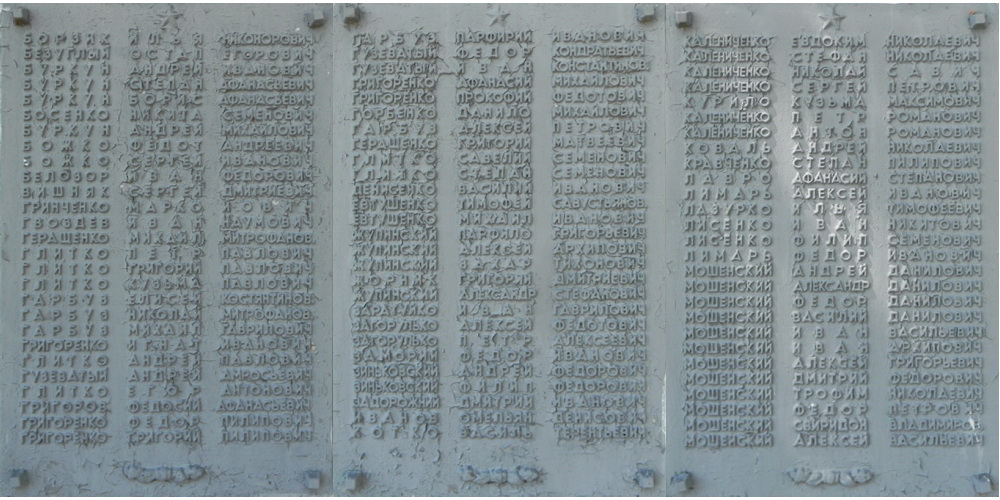 БОРЗЯК ИЛЬЯ НИКОНОРОВИЧ
БЕЗУГЛЫЙ ОСТАП ЕГОРОВИЧ
БУРКУН АНДРЕЙ ИВАНОВИЧ
БУРКУН СТЕПАН АФАНАСЬЕВИЧ
БУРКУН БОРИС АФАНАСЬЕВИЧ
БОСЕНКО НИКИТА СЕМЕНОВИЧ
БУРКУН АНДРЕЙ МИХАЙЛОВИЧ
БОЖКО ФЕДОТ АНДРЕЕВИЧ
БОЖКО СЕРГЕЙ ИВАНОВИЧ
БЕЛОЗОР ИВАН ФЕДОРОВИЧ
ВИШНЯК СЕРГЕЙ ДМИТРИЕВИЧ
ГРИНЧЕНКО МАРКО
ГВОЗДЕВ ИВАН НАУМОВИЧ
ГЕРАЩЕНКО МИХАИЛ МИТРОФАНОВ.
ГЛИТКО ПЕТР ПАВЛОВИЧ
ГЛИТКО ГРИГОРИЙ ПАВЛОВИЧ
ГЛИТКО КУЗЬМА ПАВЛОВИЧ
ГАРБУЗ ЕЛИСЕЙ КОСТЯНТИНОВ.
ГАРБУЗ НИКОЛАЙ МИТРОФАНОВ.
ГАРБУЗ МИХАИЛ ГАВРИЛОВИЧ
ГРИГОРЕНКО ИГНАТ ИВАНОВИЧ
ГЛИТКО АНДРЕЙ ПАВЛОВИЧ
ГУЗЕВАТЫЙ АНДРЕЙ АМРОСЬЕВИЧ
ГЛИТКО ЕГОР АНТОНОВИЧ
ГРИГОРОВ ФЕДОСИЙ АФАНАСЬЕВИЧ
ГРИГОРЕНКО ФЕДОР ПИЛИПОВИЧ
ГРИГОРЕНКО ГРИГОРИЙ ПИЛИПОВИЧ
ГАРБУЗ ПАРФИРИЙ ИВАНОВИЧ
ГУЗЕВАТЫЙ ФЕДОР КОНДРАТЬЕВИЧ
ГУЗЕВАТЫЙ ИВАН КОНСТАНТИНОВ.
ГРИГОРЕНКО АФАНАСИЙ МИХАЙЛОВИЧ
ГРИГОРЕНКО ПРОКОФИЙ ФЕДОТОВИЧ
ГОРБЕНКО ДАНИЛО ИВАНОВИЧ
ГАРБУЗ АЛЕКСЕЙ ПЕТРОВИЧ
ГЕРАЩЕНКО ГРИГОРИЙ МАТВЕЕВИЧ
ГЛИТКО САВЕЛИЙ СЕМЕНОВИЧ
ГЛИТКО СТЕПАН СЕМЕНОВИЧ
ДЕНИСЕНКО ВАСИЛИЙ ИВАНОВИЧ
ЕВТУШЕНКО ТИМОФЕЙ САВУСТЬЯНОВ.
ЕВТУШЕНКО МИХАИЛ ИВАНОВИЧ
ЖУПИНСКИЙ ПАНФИЛО ГРИГОРЬЕВИЧ
ЖУПИНСКИЙ АЛЕКСЕЙ АРХИПОВИЧ
ЖУПИНСКИЙ ЗАХАР ТИХОНОВИЧ
ЖОРНИК ГРИГОРИЙ ДМИТРИЕВИЧ
ЖУПИНСКИЙ АЛЕКСАНДР СТЕФАНОВИЧ
ЗАРАТУЙКО ИВАН ГАВРИЛОВИЧ
ЗАГОРУЛЬКО АЛЕКСЕЙ ФЕДОТОВИЧ
ЗАГОРУЛЬКО ПЕТР АЛЕКСЕЕВИЧ
ЗАМОРИЙ ФЕДОР ИВАНОВИЧ
ЗИНЬКОВСКИЙ АНДРЕЙ ФЕДОРОВИЧ
ЗИНЬКОВСКИЙ ФИЛИП ФЕДОРОВИЧ
ЗАДОРОЖНИЙ ДМИТРИЙ ИВАНОВИЧ
ИВАНОВ ОМЕЛЬЯН ДЕНИСОВИЧ
КОТКО ВАСИЛЬ ТЕРЕНТЬЕВИЧ
КАЛЕНИЧЕНКО ЕВДОКИМ НИКОЛАЕВИЧ
КАЛЕНИЧЕНКО СТЕФАН НИКОЛАЕВИЧ
КАЛЕНИЧЕНКО НИКОЛАЙ САВИЧ
КАЛЕНИЧЕНКО СЕРГЕЙ ПЕТРОВИЧ
КУРИЛО КУЗЬМА МАКСИМОВИЧ
КАЛЕНИЧЕНКО ПЕТР РОМАНОВИЧ
КАЛЕНИЧЕНКО АНТОН РОМАНОВИЧ
КОВАЛЬ АНДРЕЙ НИКОЛАЕВИЧ
КРАВЧЕНКО СТЕПАН ПИЛИПОВИЧ
ЛАВРО АФАНАСИЙ СТЕПАНОВИЧ
ЛИМАРЬ АЛЕКСЕЙ ИВАНОВИЧ
ЛАЗУРКО ИЛЬЯ ТИМОФЕЕВИЧ
ЛИСЕНКО ИВАН НИКИТОВИЧ
ЛИСЕНКО ФИЛИП СЕМЕНОВИЧ
ЛИМАРЬ ФЕДОР ИВАНОВИЧ
МОШЕНСКИЙ АНДРЕЙ ДАНИЛОВИЧ
МОШЕНСКИЙ АЛЕКСАНДР ДАНИЛОВИЧ
МОШЕНСКИЙ ФЕДОР ДАНИЛОВИЧ
МОШЕНСКИЙ ВАСИЛИЙ ДАНИЛОВИЧ
МОШЕНСКИЙ ИВАН ВАСИЛЬЕВИЧ
МОШЕНСКИЙ ИВАН АРХИПОВИЧ
МОШЕНСКИЙ АЛЕКСЕЙ ГРИГОРЬЕВИЧ
МОШЕНСКИЙ ДМИТРИЙ ФЕДОРОВИЧ
МОШЕНСКИЙ ТРОФИМ НИКОЛАЕВИЧ
МОШЕНСКИЙ ФЕДОР ПЕТРОВИЧ
МОШЕНСКИЙ СВИРИДОН ВЛАДИМИРОВ.
МОШЕНСКИЙ АЛЕКСЕЙ ВАСИЛЬЕВИЧ